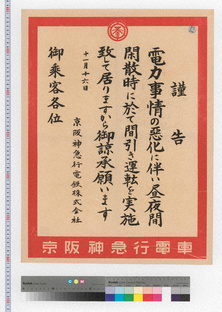 謹告
電力事情の悪化に伴い昼夜間
閑散時に於て間引き運転を実施
致して居りますから御諒承願います
十一月十六日
京阪神急行電鉄株式会社
御乗客各位
京阪神急行電車